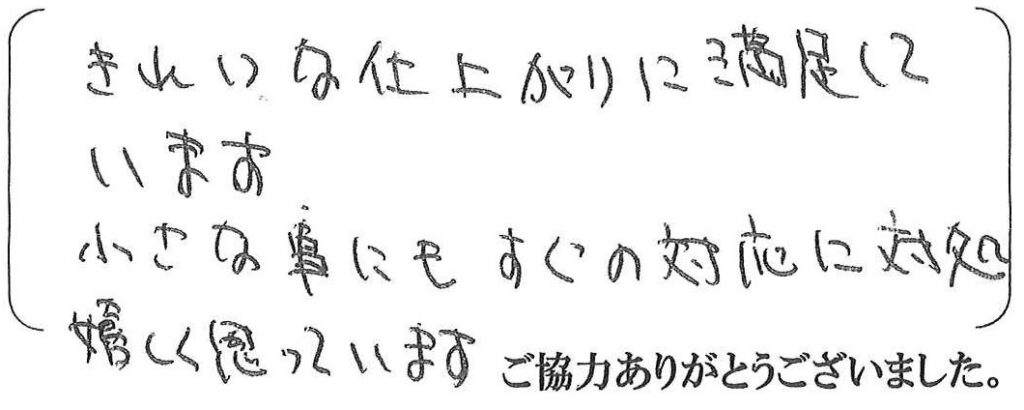 きれいな仕上がりに満足して
います
小さな事にもすぐの対応に対処
嬉しく思っています
ご協力ありがとうございました。